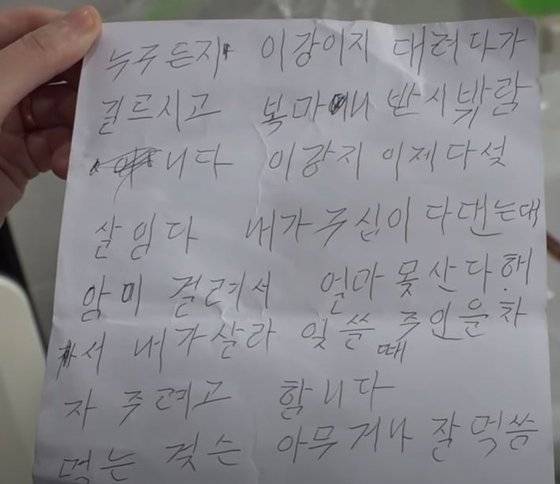 누구든지 이강이지 대려다가
길르시고 복마니 반시봐람
니다 이강지 이제다섯
살임다 내가 주신이 다댄는대
암미 걸려서 얼마 못산다.해
서 내가살라 잇쓸때 주인을차
자 주려고 함니다
먹는 것슨 아무거나 잘먹씀